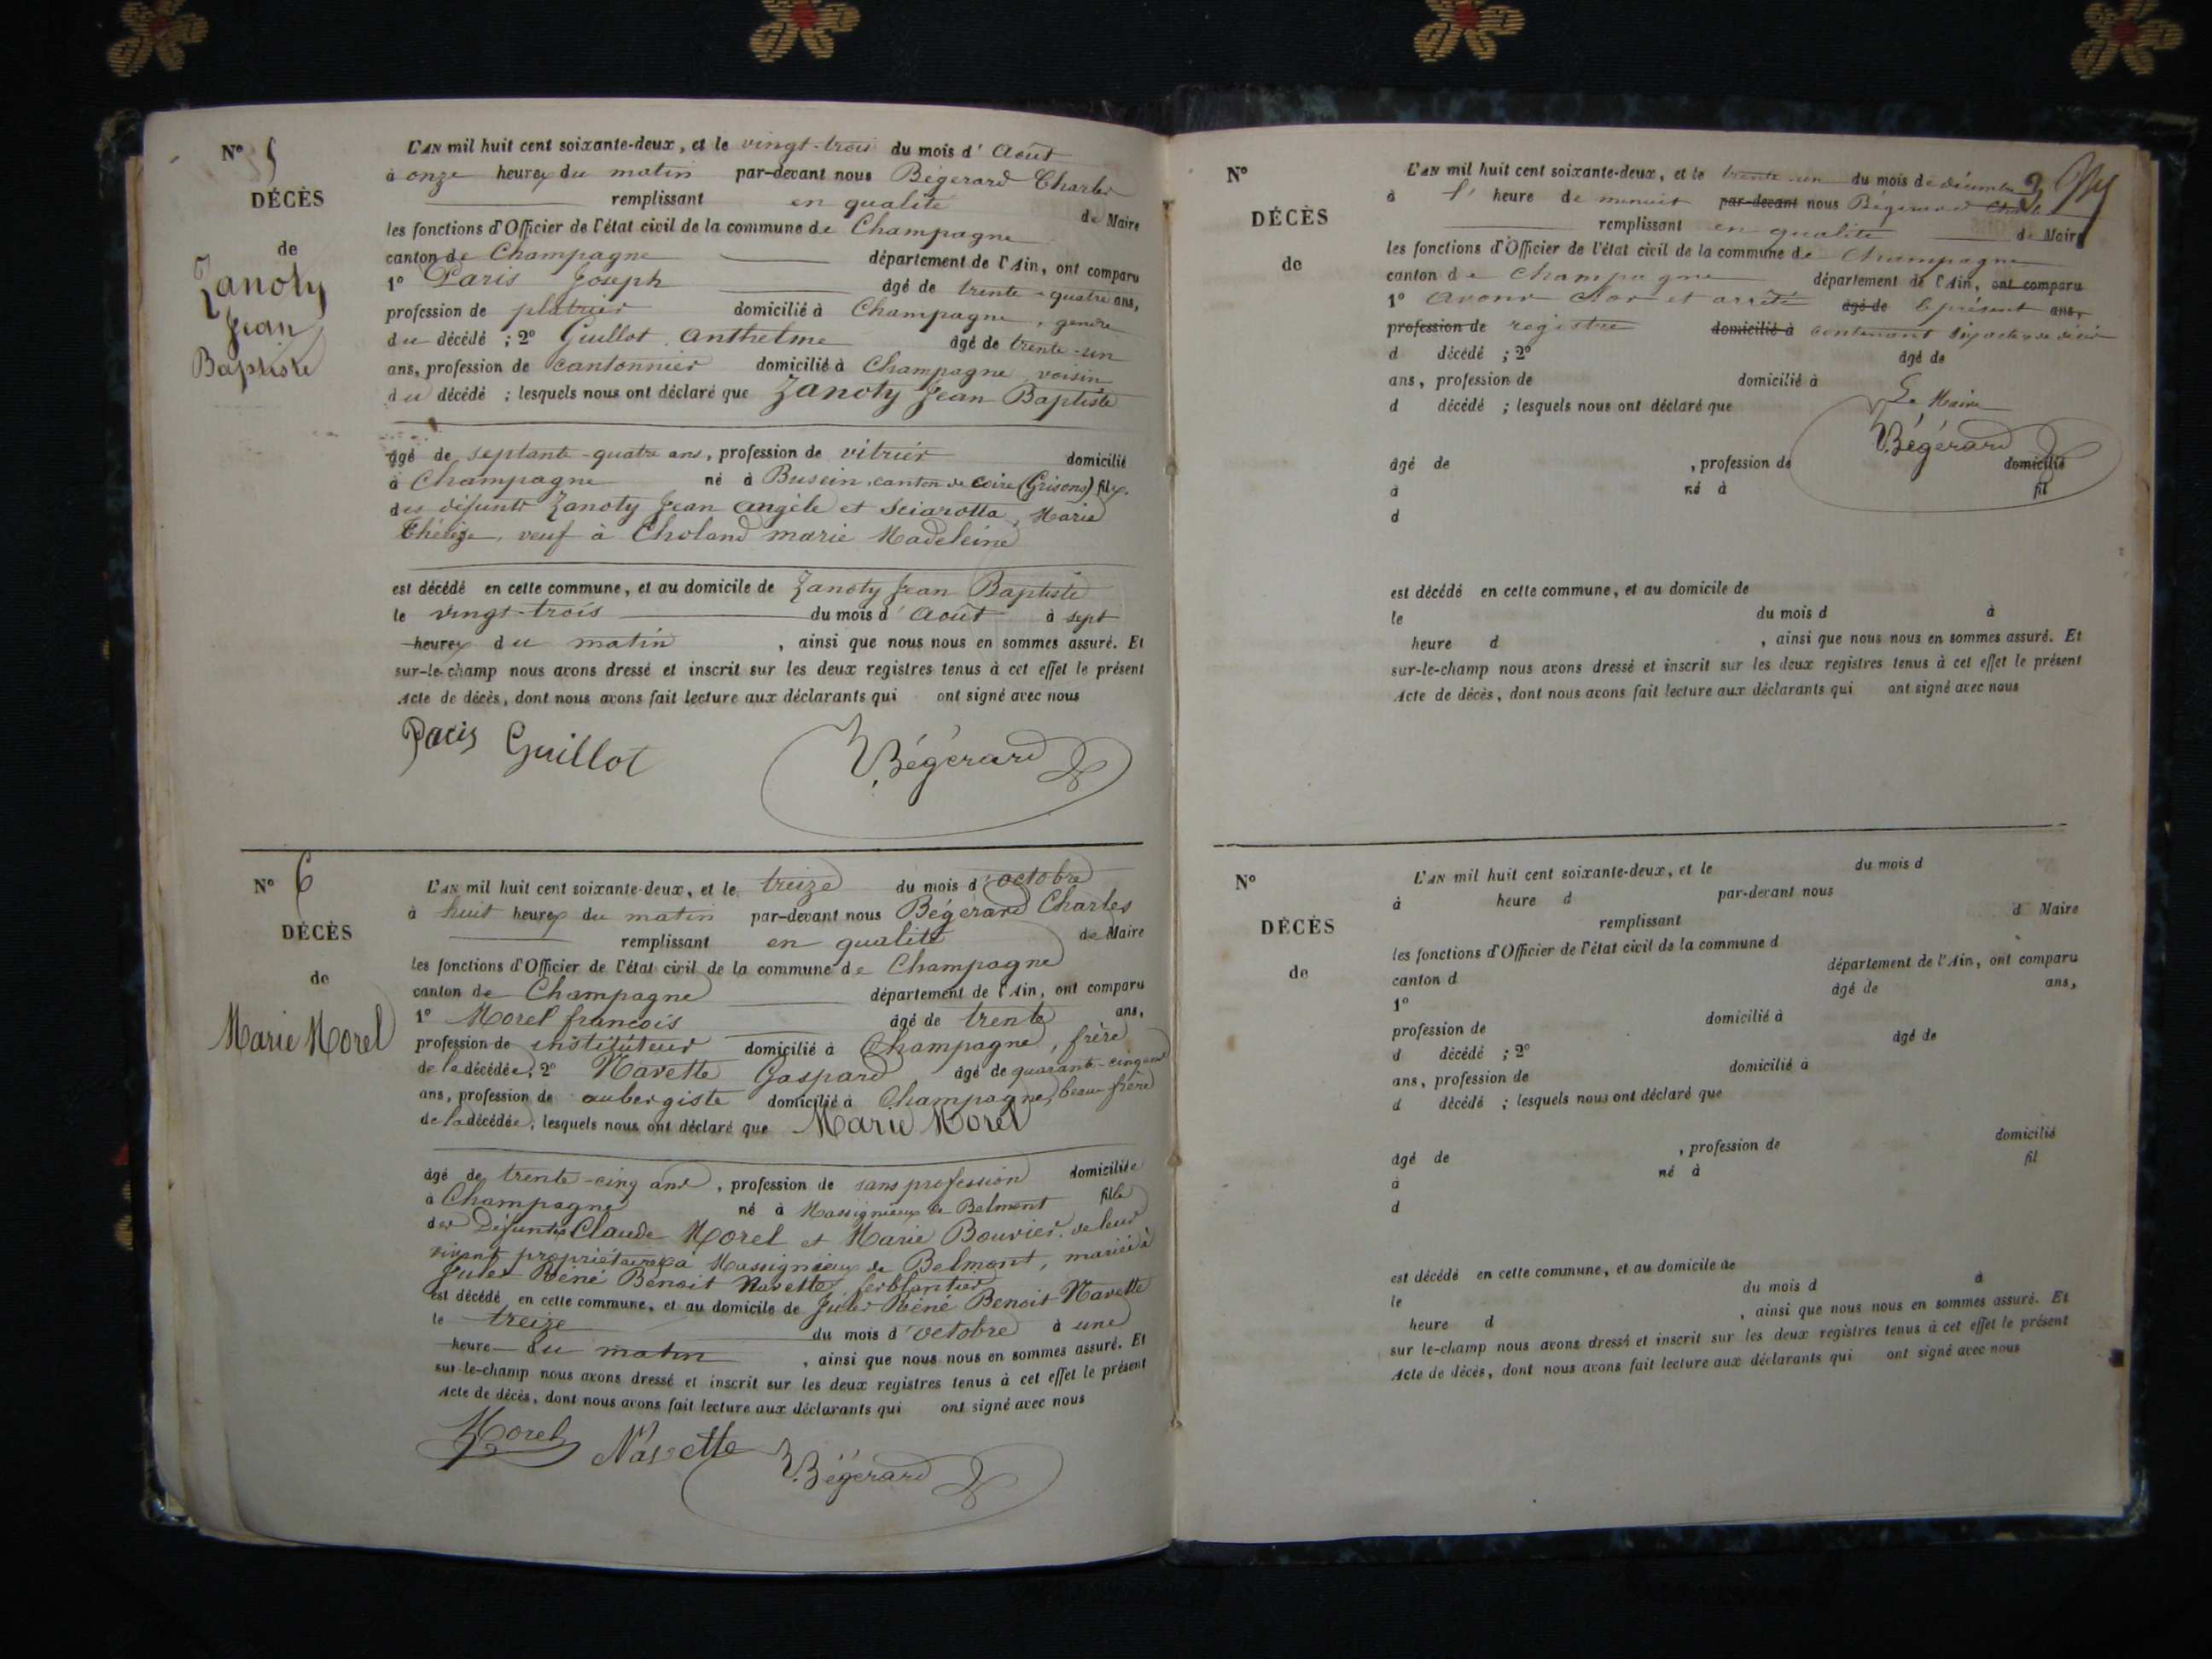 N° 5
DÉCÈS
de
Zanoty
Jean
Baptiste
L'AN mil huit cent soixante-deux, et le vingt-trois du mois d'Août
à onze heures du matin par-devant nous Bégérard Charles
remplissant en qualité de Maire
les fonctions d'Officier de l'état civil de la commune de Champagne
canton de Champagne département de l'Ain, ont comparu
1° Paris Joseph âgé de trente-quatre ans,
profession de plâtrier domicilié à Champagne, gendre
du décédé ; 2° Guillot Anthelme âgé de trente-un
ans, profession de cantonnier domicilié à Champagne voisin
du décédé ; lesquels nous ont déclaré que Zanoty Jean Baptiste
âgé de septante-quatre ans, profession de vitrier domicilié
à Champagne né à Busein, canton de Coire (Grisons) fils
des défunts Zanoty Jean Angèle et Sciarotta, Marie
Thérèze, veuf à Choland marie Madeleine
est décédé en cette commune, et au domicile de Zanoty Jean Baptiste
le vingt-trois du mois d'Août à sept
heures du matin, ainsi que nous nous en sommes assuré. Et
sur-le-champ nous avons dressé et inscrit sur les deux registres tenus à cet effet le présent
Acte de décès, dont nous avons fait lecture aux déclarants qui ont signé avec nous
Paris Guillot Bégérard
N° 6
DÉCÈS
de
Marie Morel
L'AN mil huit cent soixante-deux, et le treize du mois d'octobre
à huit heures du matin par-devant nous Bégérard Charles
remplissant en qualité de Maire
les fonctions d'Officier de l'état civil de la commune de Champagne
canton de Champagne département de l'Ain, ont comparu
1° Morel françois âgé de trente ans,
profession de instituteur domicilié à Champagne, frère
de la décédée, 2° Navette Gaspard âgé de quarante-cinq ans
ans, profession de aubergiste domicilié à Champagne, beau-frère
de la décédée ; lesquels nous ont déclaré que Marie Morel
âgé de trente-cinq ans, profession de sans profession domiciliée
à Champagne né à Massignieux de Belmont fille
des Défunts Claude Morel et Marie Bouvier, de leur
vivant propriétaires à Massignieux de Belmont, mariée à
Jules Réné Benoit Navette, ferblantier
est décédé en cette commune, et au domicile de Jules Réné Benoit Navette
le treize du mois d'octobre à une
heure du matin, ainsi que nous nous en sommes assuré. Et
sur-le-champ nous avons dressé et inscrit sur les deux registres tenus à cet effet le présent
Acte de décès, dont nous avons fait lecture aux déclarants qui ont signé avec nous
Morel Navette Bégérard
N°
DÉCÈS
de
3
L'AN mil huit cent soixante-deux, et le trente-un du mois de décembre
à l' heure de minuit par-devant nous Bégérard Charles
remplissant en qualité de Maire
les fonctions d'Officier de l'état civil de la commune de Champagne
canton de Champagne département de l'Ain, ont comparu
1° Avons clos et arrêté âgé de le présent ans,
profession de registre domicilié à contenant six actes de décès
d décédé ; 2° âgé de
ans, profession de domicilié à
d décédé ; lesquels nous ont déclaré que
Le Maire
Bégérard
âgé de , profession de domicilié
à né à fil
d
est décédé en cette commune, et au domicile de
le du mois d à
heure d , ainsi que nous nous en sommes assuré. Et
sur-le-champ nous avons dressé et inscrit sur les deux registres tenus à cet effet le présent
Acte de décès, dont nous avons fait lecture aux déclarants qui ont signé avec nous
N°
DÉCÈS
de
L'AN mil huit cent soixante-deux, et le du mois d
à heure d par-devant nous
remplissant d Maire
les fonctions d'Officier de l'état civil de la commune d
canton d département de l'Ain, ont comparu
1° âgé de ans,
profession de domicilié à
d décédé ; 2° âgé de
ans, profession de domicilié à
d décédé ; lesquels nous ont déclaré que
âgé de , profession de domicilié
à né à fil
d
est décédé en cette commune, et au domicile de
le du mois d à
heure d , ainsi que nous nous en sommes assuré. Et
sur le-champ nous avons dressé et inscrit sur les deux registres tenus à cet effet le présent
Acte de décès, dont nous avons fait lecture aux déclarants qui ont signé avec nous